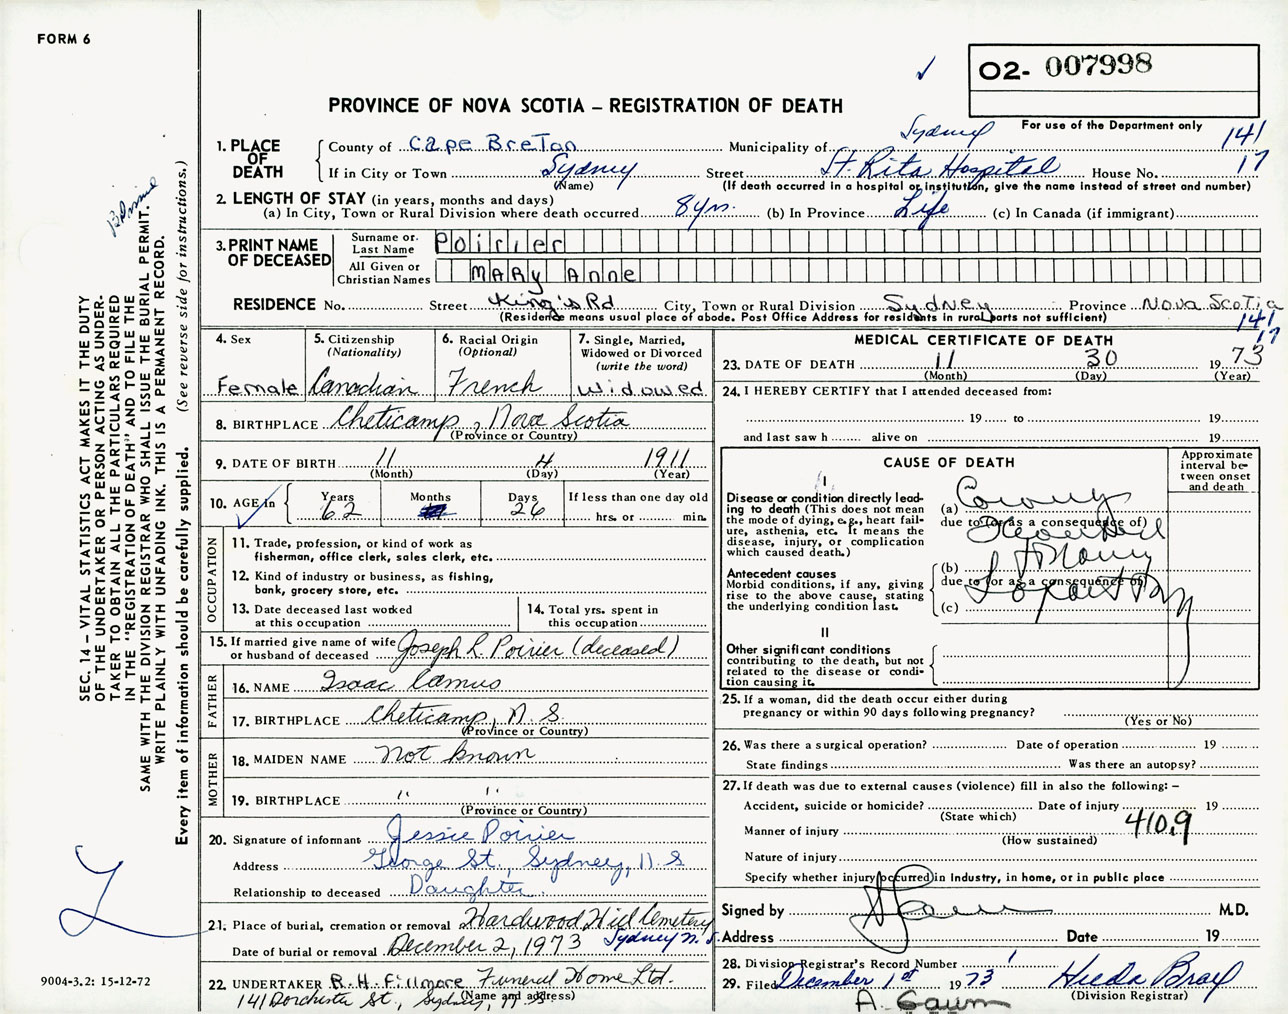 FORM 6
O2- 007998
PROVINCE OF NOVA SCOTIA – REGISTRATION OF DEATH
For use of the Department only
141
17
1. PLACE OF DEATH
County of Cape Breton Municipality of Sydney
If in City or Town Sydney Street St. Rita Hospital House No.
(Name) (If death occurred in a hospital or institution, give the name instead of street and number)
2. LENGTH OF STAY (in years, months and days)
(a) In City, Town or Rural Division where death occurred 8 yrs. (b) In Province Life (c) In Canada (if immigrant)
3. PRINT NAME OF DECEASED
Surname or Last Name Poirier
All Given or Christian Names MARY Anne
RESIDENCE No. Street King's Rd City, Town or Rural Division Sydney Province Nova Scotia
(Residence means usual place of abode. Post Office Address for residents in rural parts not sufficient)
141
17
4. Sex
Female
5. Citizenship
(Nationality)
Canadian
6. Racial Origin
(Optional)
French
7. Single, Married,
Widowed or Divorced
(write the word)
Widowed
8. BIRTHPLACE Cheticamp, Nova Scotia
(Province or Country)
9. DATE OF BIRTH 11 4 1911
(Month) (Day) (Year)
10. AGE in
Years Months Days If less than one day old
62 26 hrs. or min.
OCCUPATION
11. Trade, profession, or kind of work as
fisherman, office clerk, sales clerk, etc.
12. Kind of industry or business, as fishing,
bank, grocery store, etc.
13. Date deceased last worked
at this occupation
14. Total yrs. spent in
this occupation
15. If married give name of wife
or husband of deceased Joseph L. Poirier (deceased)
FATHER
16. NAME Isaac Camus
17. BIRTHPLACE Cheticamp, N.S.
(Province or Country)
MOTHER
18. MAIDEN NAME Not known
19. BIRTHPLACE " "
(Province or Country)
20. Signature of informant Jessie Poirier
Address George St., Sydney, N.S
Relationship to deceased Daughter
21. Place of burial, cremation or removal Hardwood Hill Cemetery
Date of burial or removal December 2, 1973 Sydney N.S.
22. UNDERTAKER R. H. Fillmore Funeral Home Ltd.
(Name and address)
141 Dorchester St., Sydney, N.S
MEDICAL CERTIFICATE OF DEATH
23. DATE OF DEATH 11 30 1973
(Month) (Day) (Year)
24. I HEREBY CERTIFY that I attended deceased from:
19 to 19
and last saw h alive on 19
CAUSE OF DEATH
Approximate
interval be-
tween onset
and death
I
Disease or condition directly lead-
ing to death (This does not mean
the mode of dying, e.g., heart fail-
ure, asthenia, etc. It means the
disease, injury, or complication
which caused death.)
(a)
due to (or as a consequence of)
Antecedent causes
Morbid conditions, if any, giving
rise to the above cause, stating
the underlying condition last.
(b)
due to (or as a consequence of)
(c)
II
Other significant conditions
contributing to the death, but not
related to the disease or condi-
tion causing it.
25. If a woman, did the death occur either during
pregnancy or within 90 days following pregnancy?
(Yes or No)
26. Was there a surgical operation? Date of operation 19
State findings Was there an autopsy?
27. If death was due to external causes (violence) fill in also the following: –
Accident, suicide or homicide? Date of injury 19
(State which)
Manner of injury 410.9
(How sustained)
Nature of injury
Specify whether injury occurred in Industry, in home, or in public place
Signed by M.D.
Address Date 19
28. Division Registrar's Record Number 1
29. Filed December 1st 1973 Hilda Bray
(Division Registrar)
SEC. 14 – VITAL STATISTICS ACT MAKES IT THE DUTY
OF THE UNDERTAKER OR PERSON ACTING AS UNDER-
TAKER TO OBTAIN ALL THE PARTICULARS REQUIRED
IN THE "REGISTRATION OF DEATH" AND TO FILE THE
SAME WITH THE DIVISION REGISTRAR WHO SHALL ISSUE THE BURIAL PERMIT.
WRITE PLAINLY WITH UNFADING INK. THIS IS A PERMANENT RECORD.
Every item of information should be carefully supplied. (See reverse side for instructions.)
9004-3.2: 15-12-72